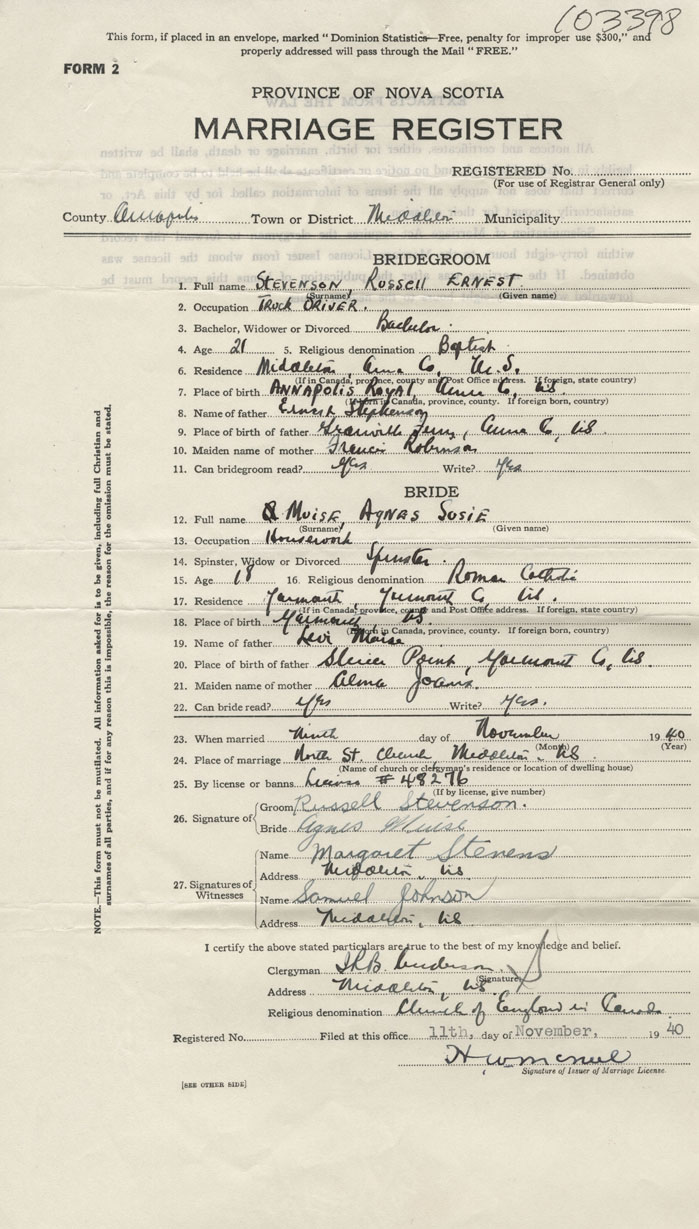 103398
This form, if placed in an envelope, marked "Dominion Statistics—Free, penalty for improper use $300," and
properly addressed will pass through the Mail "FREE."
FORM 2
PROVINCE OF NOVA SCOTIA
MARRIAGE REGISTER
REGISTERED No.
(For use of Registrar General only)
County Annapolis Town or District Middleton Municipality
BRIDEGROOM
1. Full name STEVENSON, RUSSELL ERNEST
(Surname) (Given name)
2. Occupation TRUCK DRIVER.
3. Bachelor, Widower or Divorced Bachelor.
4. Age 21 5. Religious denomination Baptist
6. Residence Middleton, Anna Co, N.S.
(If in Canada, province, county and Post Office address. If foreign, state country)
7. Place of birth ANNAPOLIS ROYAL, Anna Co, NS
(If born in Canada, province, county. If foreign born, country)
8. Name of father Ernest Stephenson
9. Place of birth of father Granville Ferry, Anna Co, NS
10. Maiden name of mother Francis Robinson
11. Can bridegroom read? Yes Write? Yes
BRIDE
12. Full name MUISE, AGNES SUSIE
(Surname) (Given name)
13. Occupation Housework
14. Spinster, Widow or Divorced Spinster.
15. Age 18 16. Religious denomination Roman Catholic
17. Residence Yarmouth, Yarmouth Co, NS.
(If in Canada, province, county and Post Office address. If foreign, state country)
18. Place of birth Yarmouth NS
(If born in Canada, province, county. If foreign born, country)
19. Name of father Levi Muise
20. Place of birth of father Sluice Point, Yarmouth Co, NS.
21. Maiden name of mother Alma
22. Can bride read? Yes Write? Yes.
23. When married Ninth day of November 1940
(Month) (Year)
24. Place of marriage North St. Church, Middleton, NS
(Name of church or clergyman's residence or location of dwelling house)
25. By license or banns License # 48276
(If by license, give number)
26. Signature of
Groom Russell Stevenson.
Bride Agnes Muise
27. Signatures of Witnesses
Name Margaret Stevens
Address Middleton, NS
Name Samuel Johnson
Address Middleton, NS
I certify the above stated particulars are true to the best of my knowledge and belief.
Clergyman Anderson
(Signature)
Address Middleton, NS
Religious denomination Church of England in Canada
Registered No. Filed at this office 11th, day of November, 1940
Signature of Issuer of Marriage License.
[SEE OTHER SIDE]
NOTE.—This form must not be mutilated. All information asked for is to be given, including full Christian and
surnames of all parties, and if for any reason this is impossible, the reason for the omission must be stated.